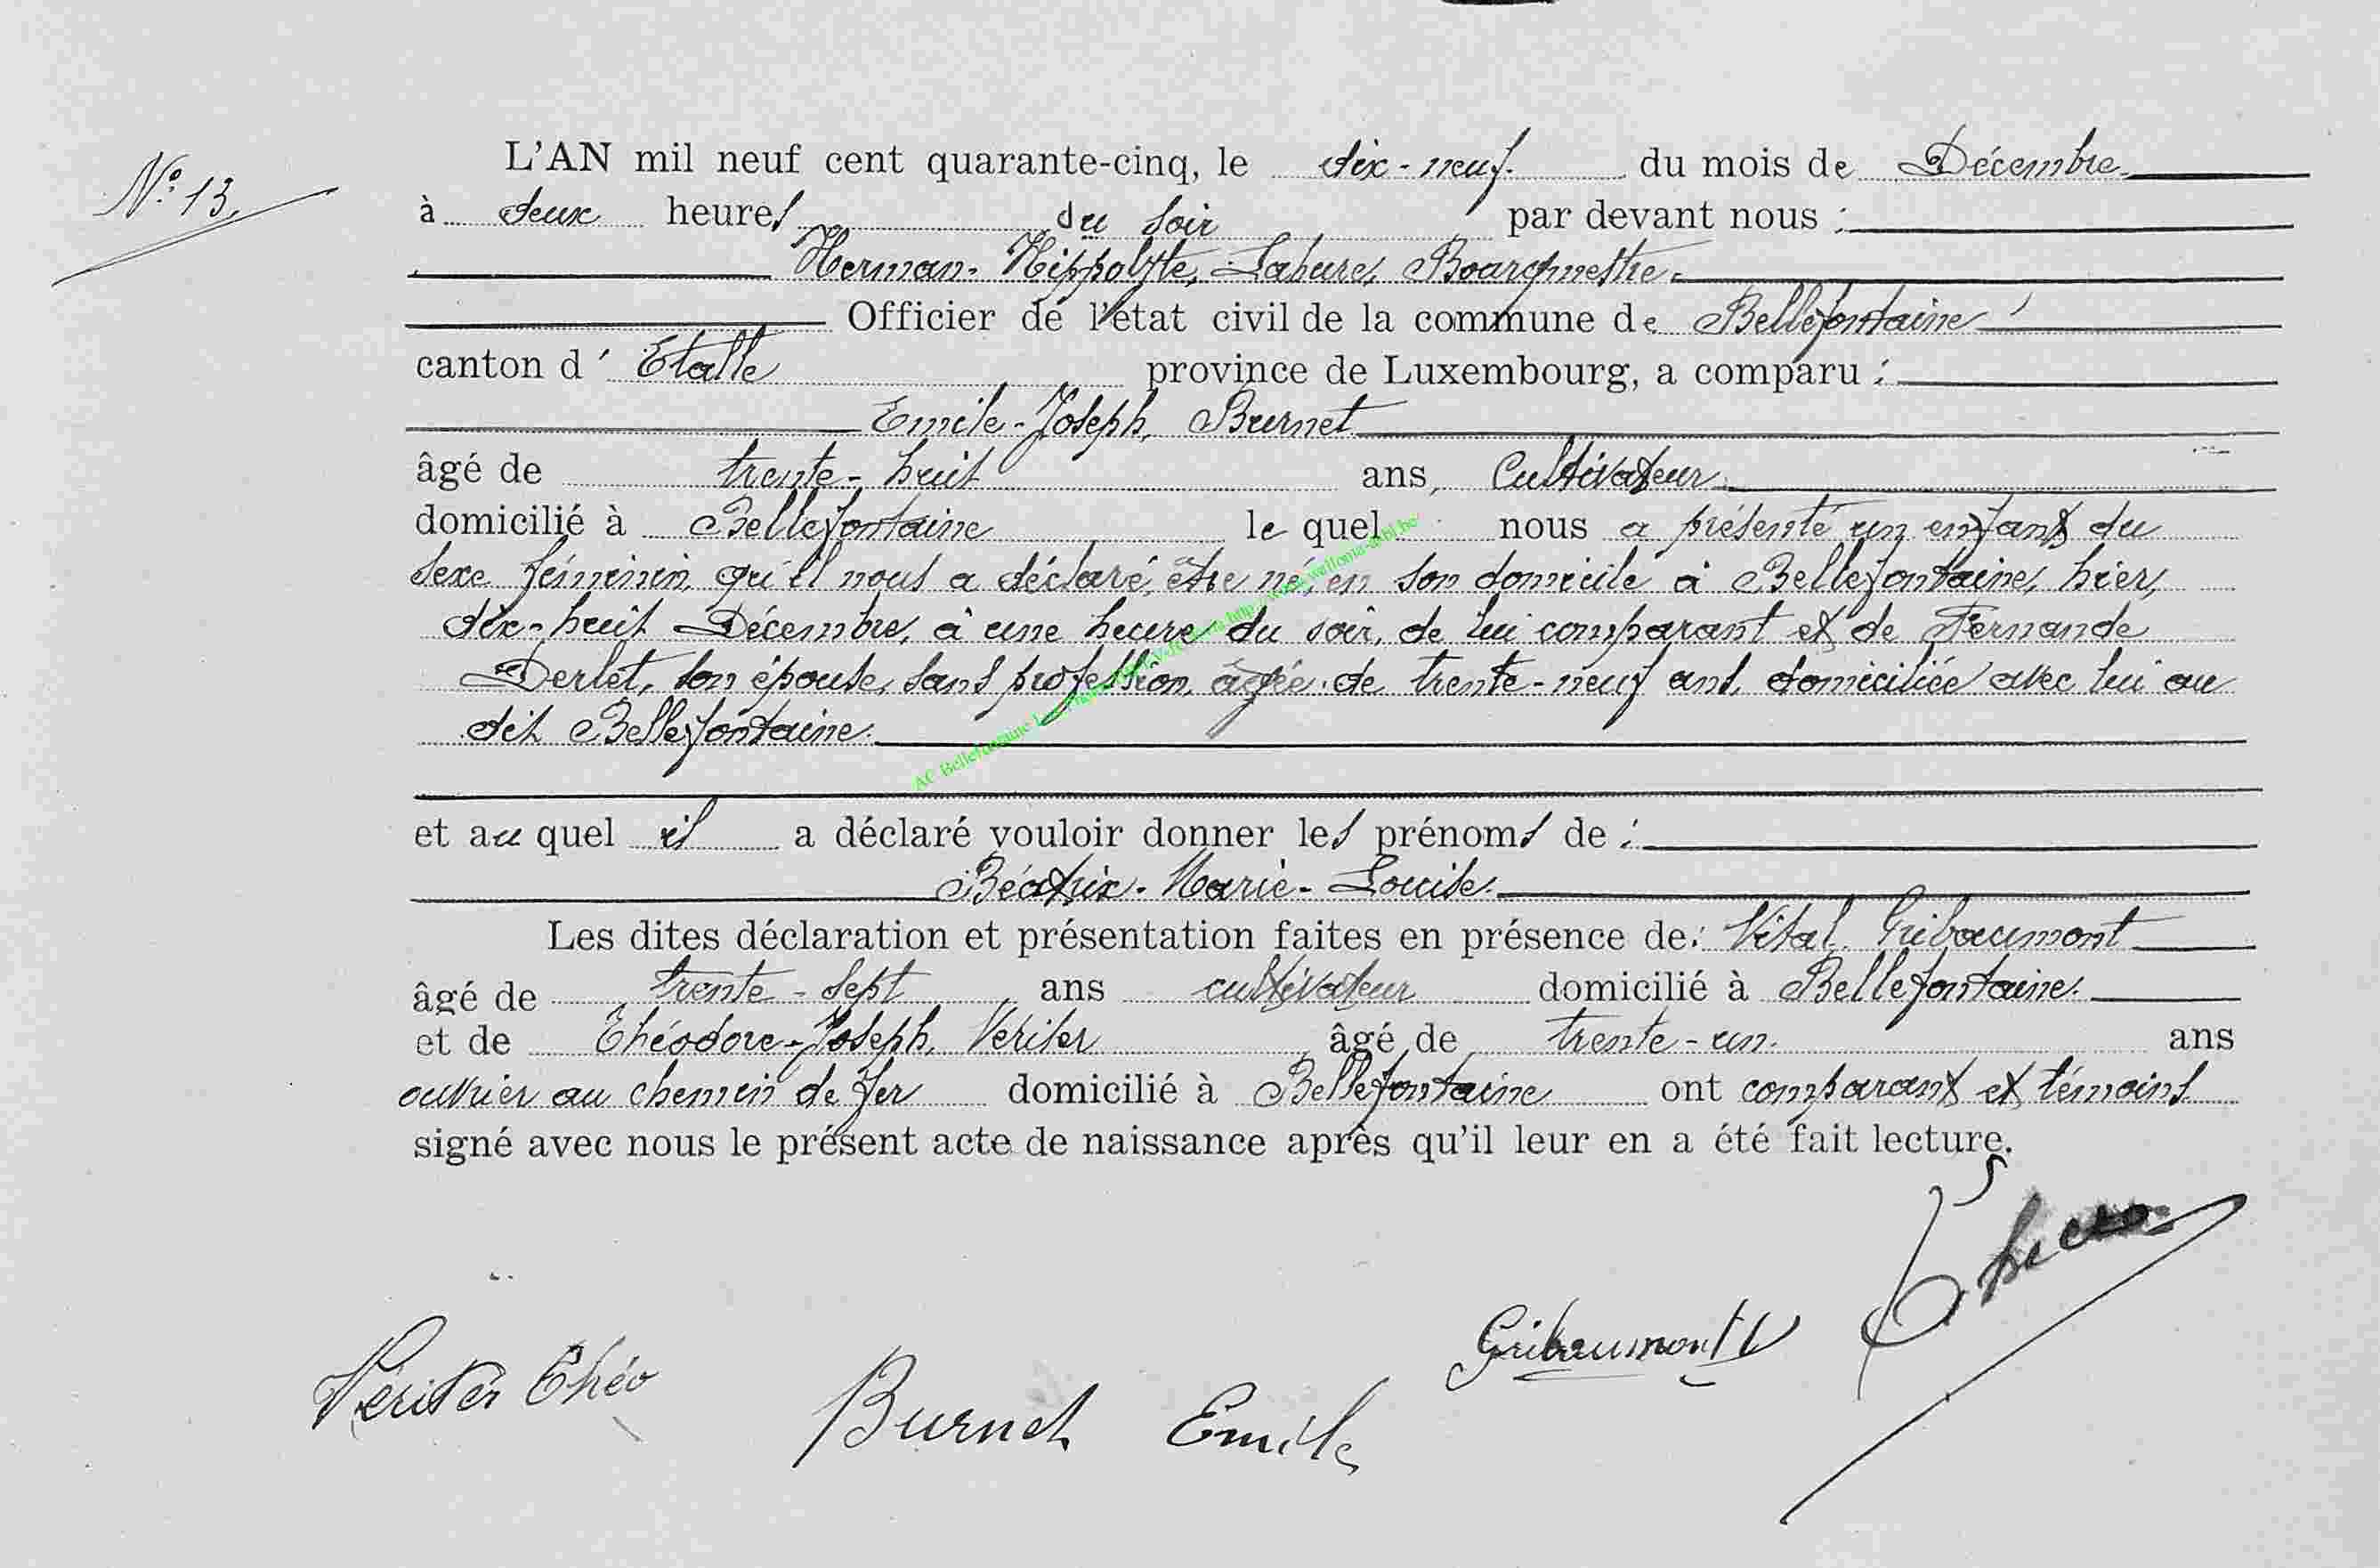 N° 13.
L'AN mil neuf cent quarante-cinq, le dix-neuf. du mois de Décembre
à deux heures du soir par devant nous :
Herman-Hippolyte, Lahure, Bourgmestre.
Officier de l'état civil de la commune de Bellefontaine
canton d' Etalle province de Luxembourg, a comparu :
Emile-Joseph, Burnet
âgé de trente-huit ans, Cultivateur
domicilié à Bellefontaine le quel nous a présenté un enfant du
sexe féminin, qu'il nous a déclaré, être né, en son domicile à Bellefontaine, hier,
dix-huit Décembre, à une heure du soir, de lui comparant et de Fernande
Derlet, son épouse, sans profession, âgée de trente-neuf ans, domiciliée avec lui au
dit Bellefontaine.
et au quel il a déclaré vouloir donner les prénoms de :
Béatrix-Marie-Louise.
Les dites déclaration et présentation faites en présence de: Vital Gribaumont
âgé de trente-sept ans cultivateur domicilié à Bellefontaine.
et de Théodore-Joseph, Veriter âgé de trente-un. ans
ouvrier au chemin de fer domicilié à Bellefontaine ont comparant et témoins
signé avec nous le présent acte de naissance après qu'il leur en a été fait lecture.
Gribaumont V
Veriter Théo Burnet Emile